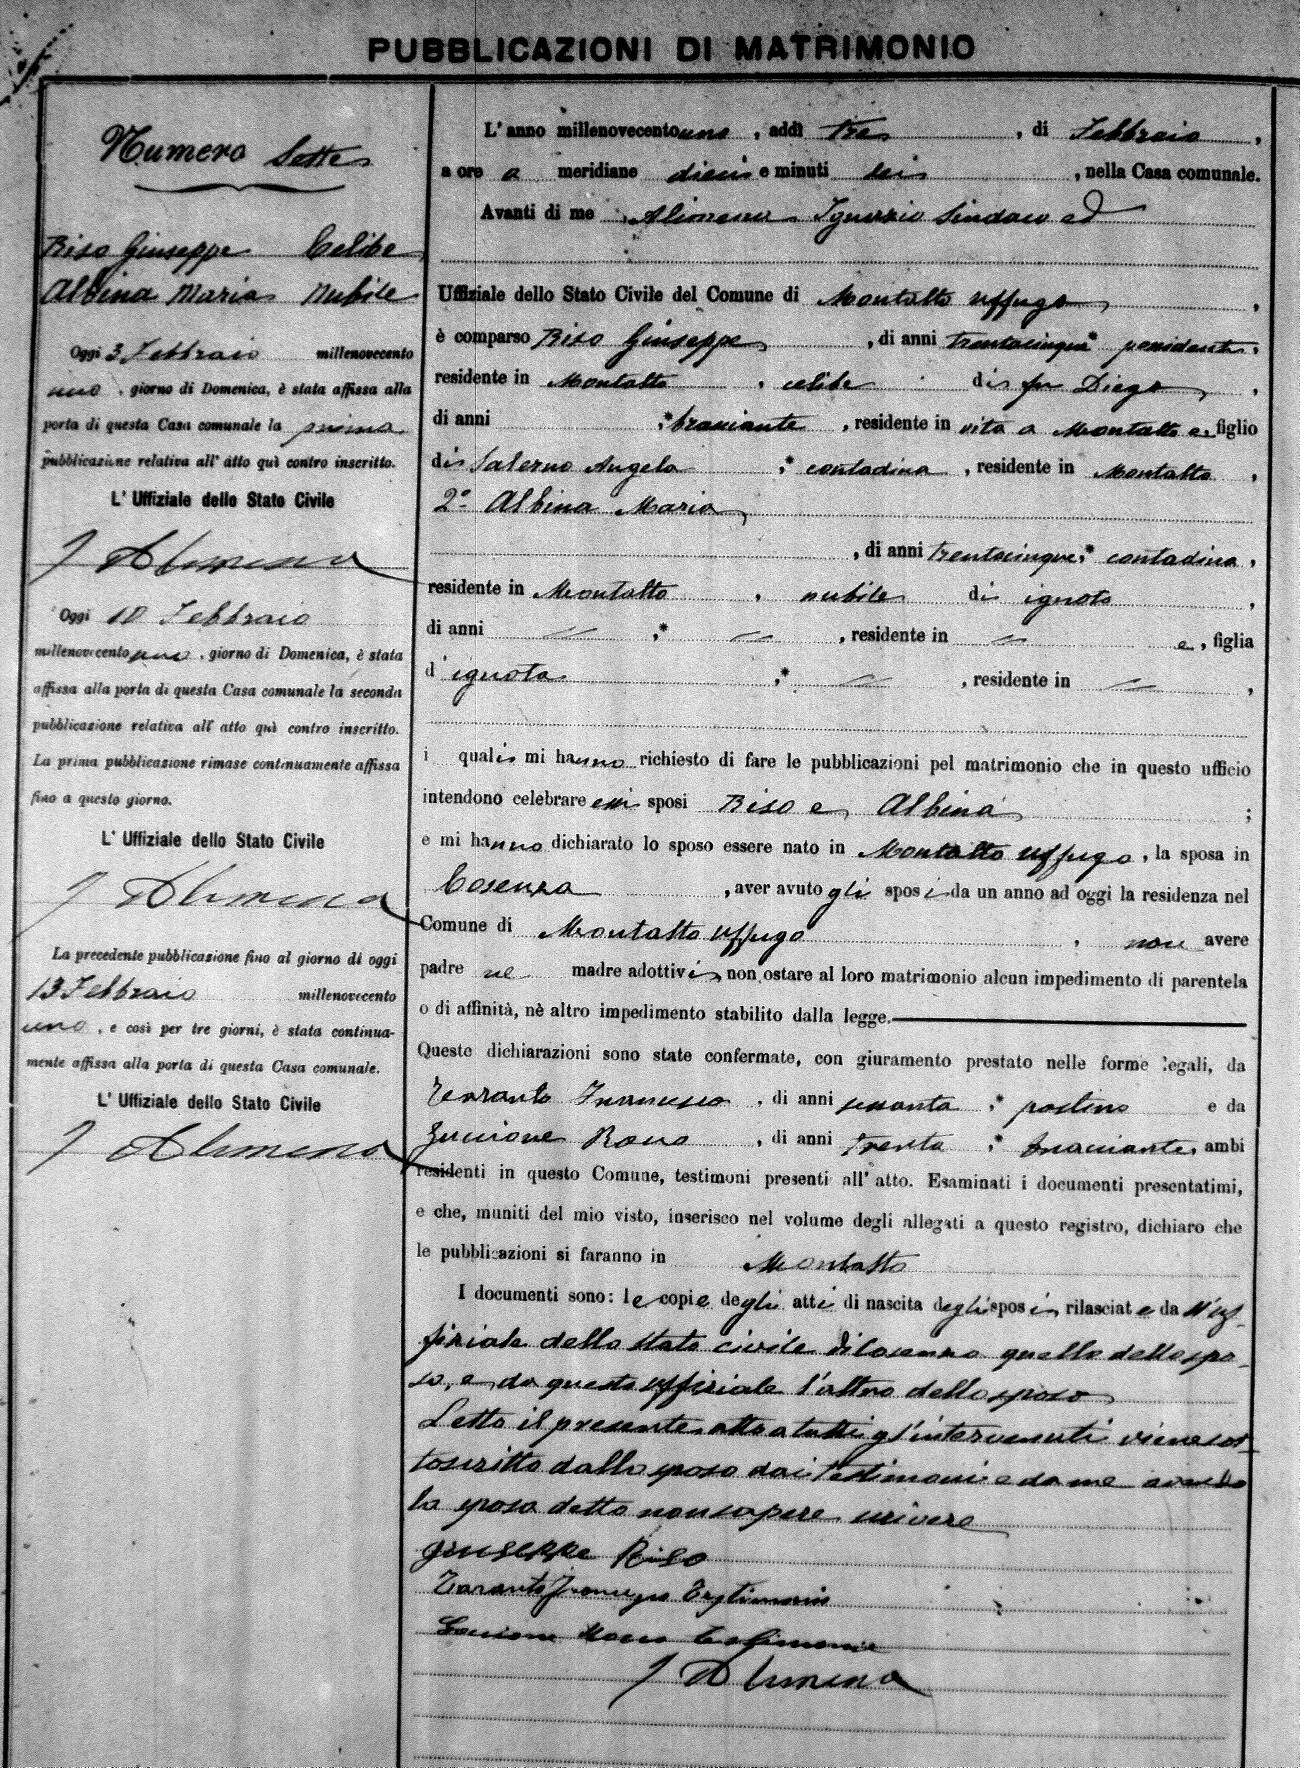 PUBBLICAZIONI DI MATRIMONIO
Numero Sette
Riso Giuseppe Celibe
Albina Maria Nubile
Oggi 3 Febbraio millenovecento
uno, giorno di Domenica, è stata affissa alla
porta di questa Casa comunale la prima
pubblicazione relativa all' atto quì contro inscritto.
L' Uffiziale dello Stato Civile
I Alimena
Oggi 10 Febbraio
millenovecento uno, giorno di Domenica, è stata
affissa alla porta di questa Casa comunale la seconda
pubblicazione relativa all' atto quì contro inscritto.
La prima pubblicazione rimase continuamente affissa
fino a questo giorno.
L' Uffiziale dello Stato Civile
I Alimena
La precedente pubblicazione fino al giorno di oggi
13 Febbraio millenovecento
uno, e così per tre giorni, è stata continua-
mente affissa alla porta di questa Casa comunale.
L' Uffiziale dello Stato Civile
I Alimena
L' anno millenovecentouno, addì tre, di Febbraio,
a ore a meridiane dieci e minuti sei, nella Casa comunale.
Avanti di me Alimena Ignazio Sindaco ed
Uffiziale dello Stato Civile del Comune di Montalto Uffugo,
è comparso Riso Giuseppe, di anni trentacinque,
residente in Montalto, celibe di fu Diego,
di anni , * bracciante, residente in vita a Montalto e, figlio
di Salerno Angela , * contadina, residente in Montalto,
2° Albina Maria
, di anni trentacinque, * contadina,
residente in Montalto, nubile di ignoto,
di anni // , * // , residente in // e, figlia
d'ignota , * // , residente in // ,
i quali mi hanno richiesto di fare le pubblicazioni pel matrimonio che in questo ufficio
intendono celebrare essi sposi Riso e Albina ;
e mi hanno dichiarato lo sposo essere nato in Montalto Uffugo, la sposa in
Cosenza , aver avuto gli sposi da un anno ad oggi la residenza nel
Comune di Montalto Uffugo , non avere
padre ne madre adottivi, non ostare al loro matrimonio alcun impedimento di parentela
o di affinità, nè altro impedimento stabilito dalla legge.
Queste dichiarazioni sono state confermate, con giuramento prestato nelle forme legali, da
Francesco , di anni sessanta , * postino e da
Rocco , di anni trenta , * bracciante, ambi
residenti in questo Comune, testimoni presenti all' atto. Esaminati i documenti presentatimi,
e che, muniti del mio visto, inserisco nel volume degli allegati a questo registro, dichiaro che
le pubblicazioni si faranno in Montalto
I documenti sono: le copie degli atti di nascita degli sposi, rilasciate da ll'uf-
fiziale dello stato civile di Cosenza quella della spo-
sa, e da questo uffiziale l'altra dello sposo
Letto il presente atto a tutti gl'intervenuti viene sot-
toscritto dallo sposo dai testimoni e da me avendo
la sposa detto non sapere scrivere
Giuseppe Riso
Taranto Francesco Testimonio
Rocco Testimonio
I Alimena